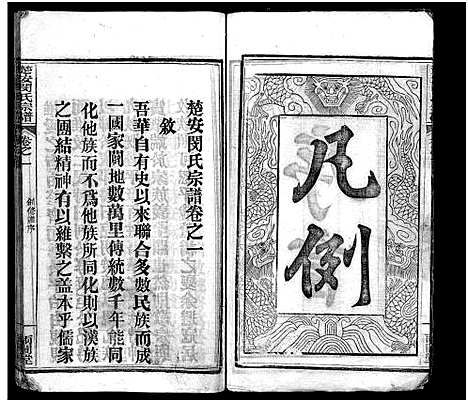 凡例
楚安閔氏宗譜卷之一
敘
吾華自有史以來聯合多數民族而成
一國家闢地數萬里傳統數千年能同
化他族而不爲他族所同化則以漢族
之團結精神有以維繫之蓋本乎儒家
楚安閔氏宗譜
卷之一